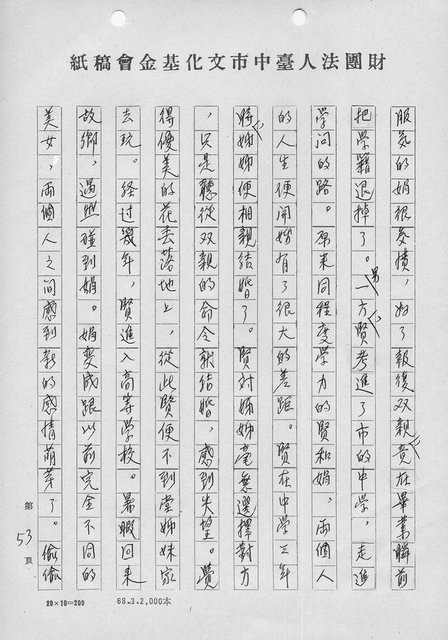 財團法人臺中市文化基金會稿紙
服氣的娟很氣憤，為了報復双親竟在畢業歸前
把學籍退掉了。另一方賢考進了市的中學，走進
學问的路。原來同程度學力的賢和娟，兩個人
的人生便開始有了很大的差距。賢在中學三年
時姊姊便相親結婚了。賢对姊姊毫無選擇對方
，只是聽從双親的命令就结婚，感到失望。覺
得優美的花丢落地上，從此賢便不到堂姊妹家
去玩。经过幾年，賢進入高等學校。暑暇回来
故鄉，遇然碰到娟。娟变成跟以前完全不同的
美女，兩個人之间感到新的感情萌芽了。偷偷
第53頁
20×10=200
68.3.2,000本